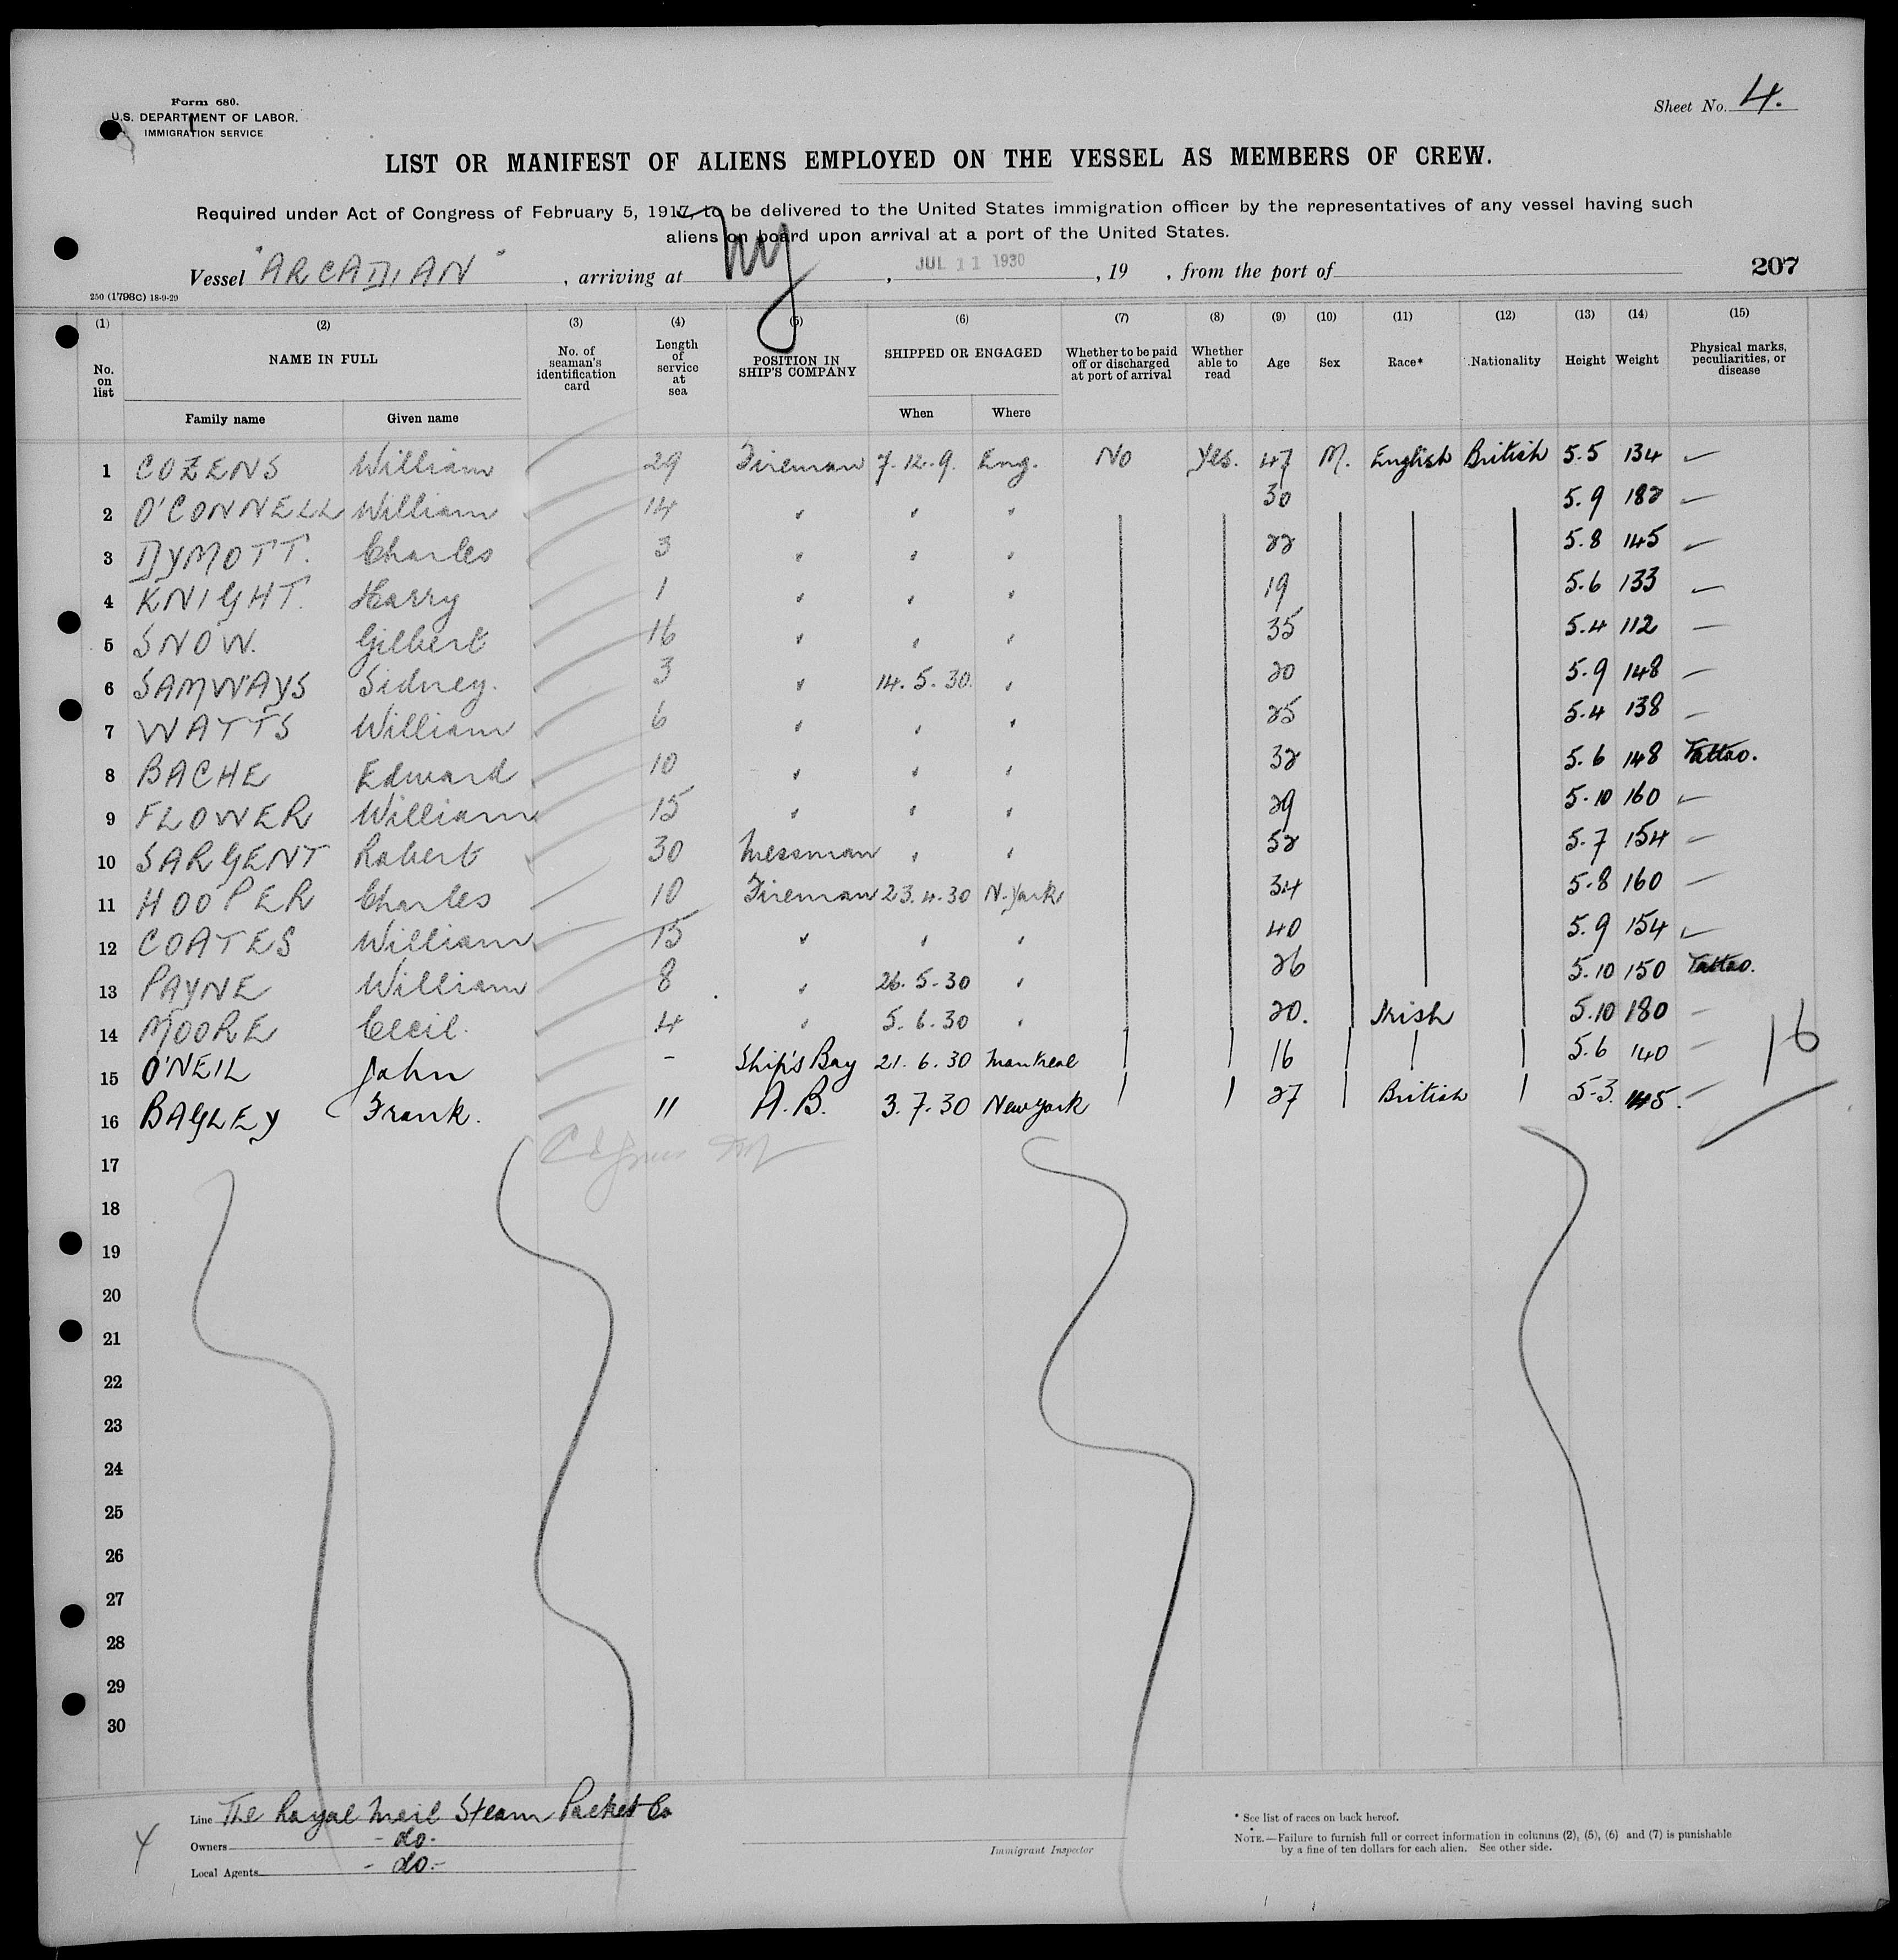 Form 680.
U.S. DEPARTMENT OF LABOR.
IMMIGRATION SERVICE
Sheet No. 4.
LIST OR MANIFEST OF ALIENS EMPLOYED ON THE VESSEL AS MEMBERS OF CREW.
Required under Act of Congress of February 5, 1917, to be delivered to the United States immigration officer by the representatives of any vessel having such
aliens on board upon arrival at a port of the United States.
Vessel "ARCADIAN", arriving at NY, JUL 11 1930, 19 , from the port of
207
250 (1798C) 18-9-29
(1) (2) (3) (4) (5) (6) (7) (8) (9) (10) (11) (12) (13) (14) (15)
No. on list NAME IN FULL No. of seaman's identification card Length of service at sea POSITION IN SHIP'S COMPANY SHIPPED OR ENGAGED Whether to be paid off or discharged at port of arrival Whether able to read Age Sex Race* Nationality Height Weight Physical marks, peculiarities, or disease
Family name Given name When Where
1 COZENS William 29 Fireman 7.12.9. Eng. No Yes. 47 M. English British 5.5 134 —
2 O'CONNELL William 14 " " " 30 5.9 182 —
3 DYMOTT. Charles 3 " " " 22 5.8 145 —
4 KNIGHT. Harry 1 " " " 19 5.6 133 —
5 SNOW. Gilbert 16 " " " 35 5.4 112 —
6 SAMWAYS Sidney. 3 " 14.5.30. " 20 5.9 148 —
7 WATTS William 6 " " " 25 5.4 138 —
8 BACHE Edward 10 " " " 32 5.6 148 Tattoo.
9 FLOWER William 15 " " " 29 5.10 160 —
10 SARGENT Robert 30 Messman " " 52 5.7 154 —
11 HOOPER Charles 10 Fireman 23.4.30 N.York 34 5.8 160 —
12 COATES William 15 " " " 40 5.9 154 —
13 PAYNE William 8 " 26.5.30 " 26 5.10 150 Tattoo.
14 MOORE Cecil. 4 " 5.6.30 " 20. Irish 5.10 180 —
15 O'NEIL John - Ship's Boy 21.6.30 Montreal 16 5.6 140 —
16 BAGLEY Frank. 11 A.B. 3.7.30 New York 27 British 5.3. 145. —
16
17
18
19
20
21
22
23
24
25
26
27
28
29
30
Line The Royal Mail Steam Packet Co
Owners - do. -
Local Agents - do. -
Immigrant Inspector
* See list of races on back hereof.
NOTE.—Failure to furnish full or correct information in columns (2), (5), (6) and (7) is punishable
by a fine of ten dollars for each alien. See other side.